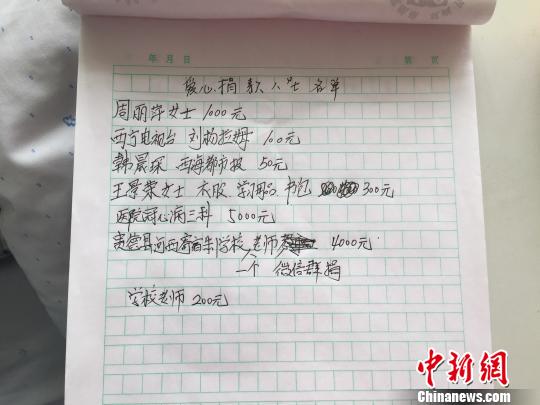 年 月 日 第 页
爱心捐款人士名单
周丽萍女士 1000元
西宁电视台 刘杨拉姆 100元
韩晨琛 西海都市报 50元
王景荣女士 衣服 学习用品 书包 300元
医院冠心病三科 5000元
贵德县河西寄宿制学校 老师 4000元
一个 微信群捐
学校老师 200元
中新网
Chinanews.com